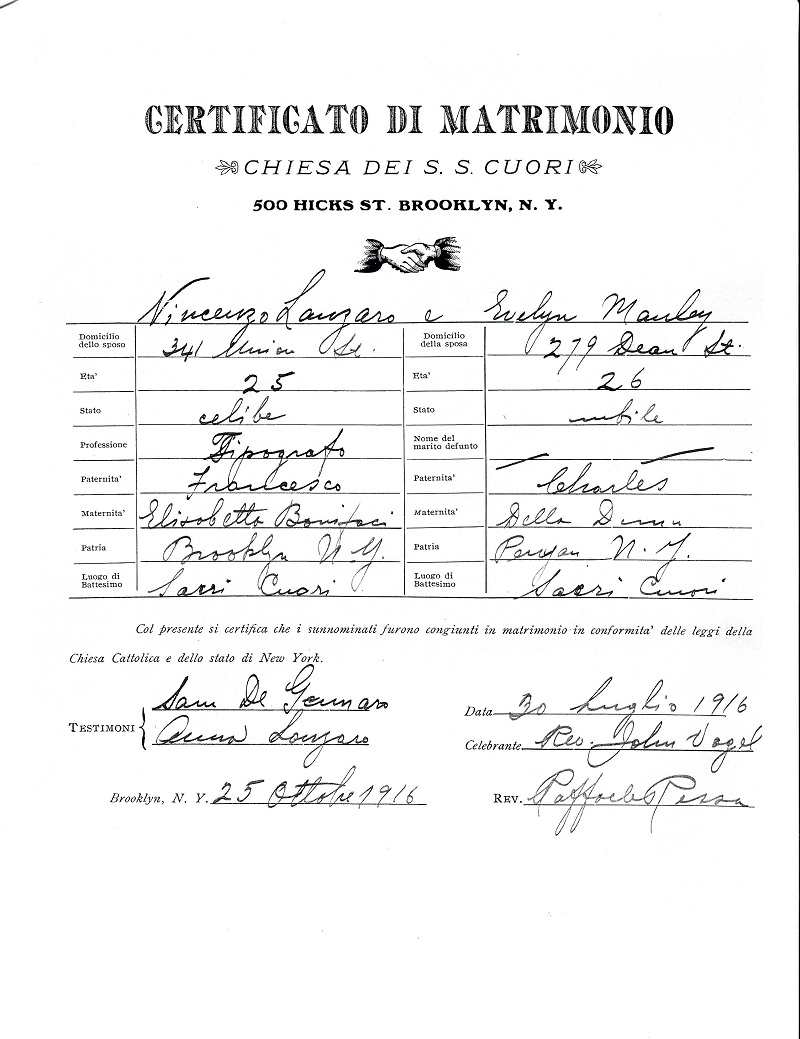 CERTIFICATO DI MATRIMONIO
CHIESA DEI S. S. CUORI
500 HICKS ST. BROOKLYN, N. Y.
Vincenzo Lanzaro e Evelyn Manley
Domicilio dello sposo 341 Union St. Domicilio della sposa 279 Dean St.
Eta' 25 Eta' 26
Stato celibe Stato nubile
Professione Tipografo Nome del marito defunto
Paternita' Francesco Paternita' Charles
Maternita' Elisabetta Bonifaci Maternita' Della
Patria Brooklyn N.Y. Patria N.Y.
Luogo di Battesimo Sacri Cuori Luogo di Battesimo Sacri Cuori
Col presente si certifica che i sunnominati furono congiunti in matrimonio in conformita' delle leggi della
Chiesa Cattolica e dello stato di New York.
TESTIMONI Sam De Gennaro
Anna Lanzaro
Data 30 Luglio 1916
Celebrante Rev. John Vogel
Brooklyn, N. Y. 25 Ottobre 1916 REV. Raffaele